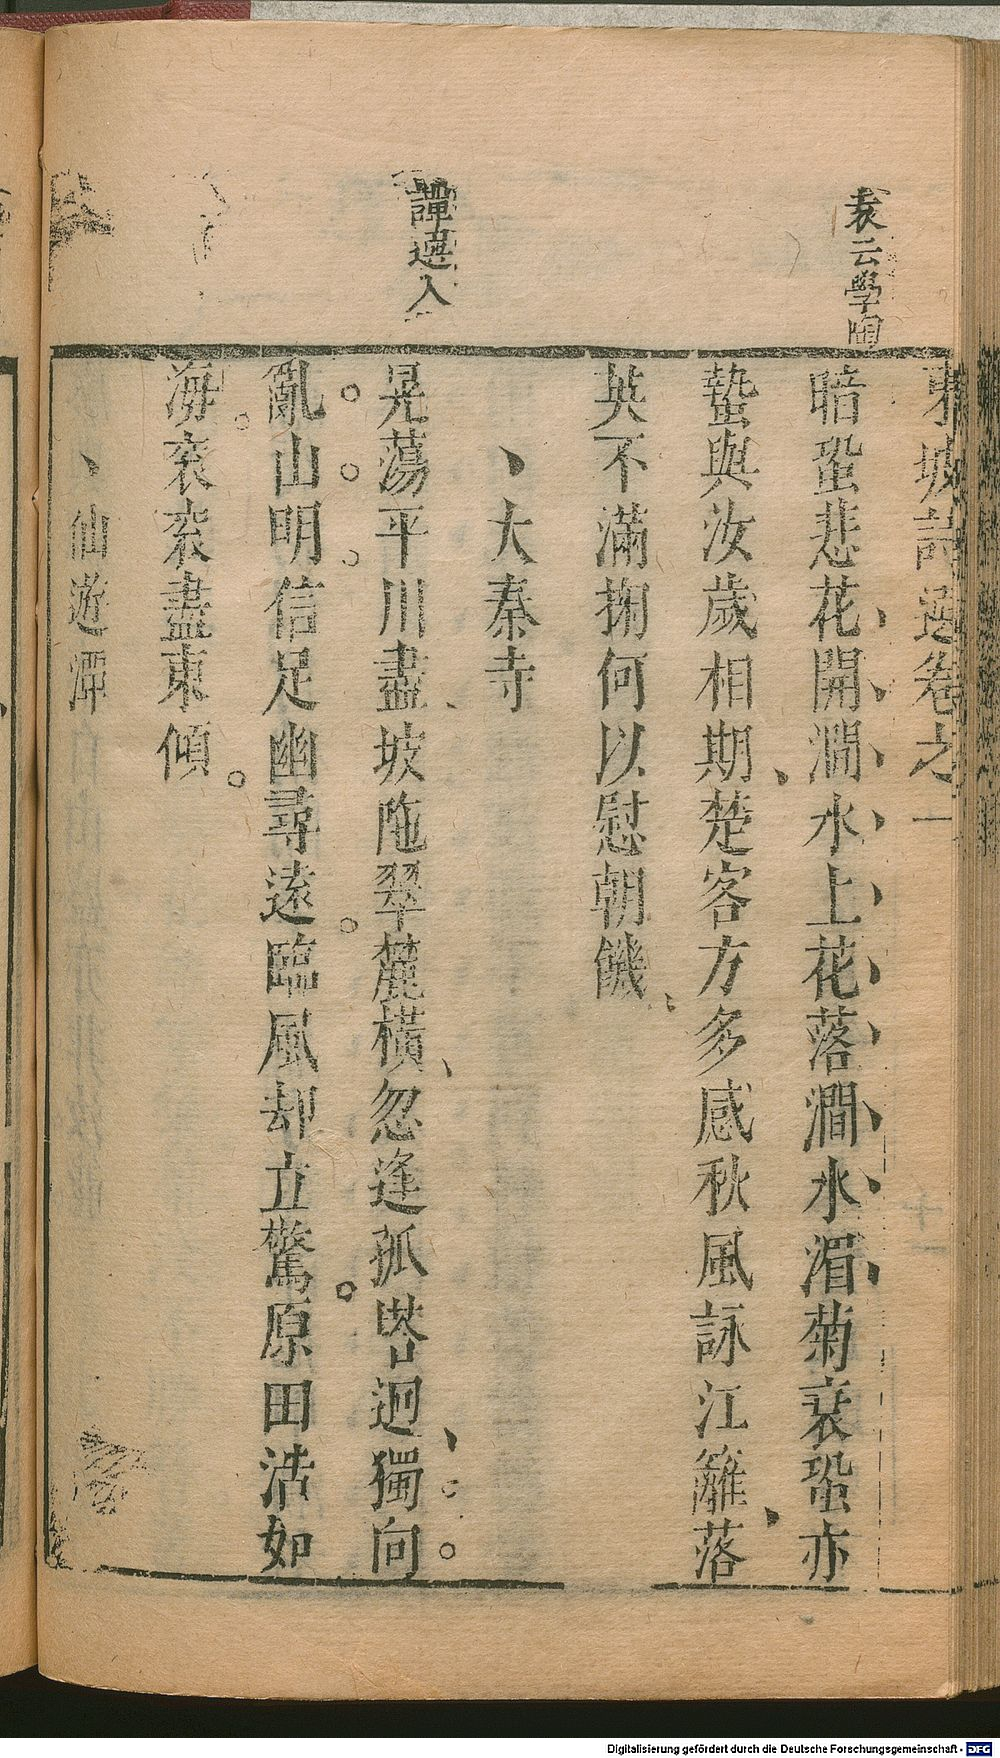 袁云學陶
東坡詩選卷之一
暗蛩悲花開澗水上花落澗水湄菊衰蛩亦
蟄與汝歲相期楚客方多感秋風詠江蘺落
英不滿掬何以慰朝饑
大秦寺
譚選入
晃蕩平川盡坡陁翠麓橫忽逢孤塔迥獨向
亂山明信足幽尋遠臨風却立驚原田浩如
海衮衮盡東傾
仙遊潭
Digitalisierung gefördert durch die Deutsche Forschungsgemeinschaft - DFG